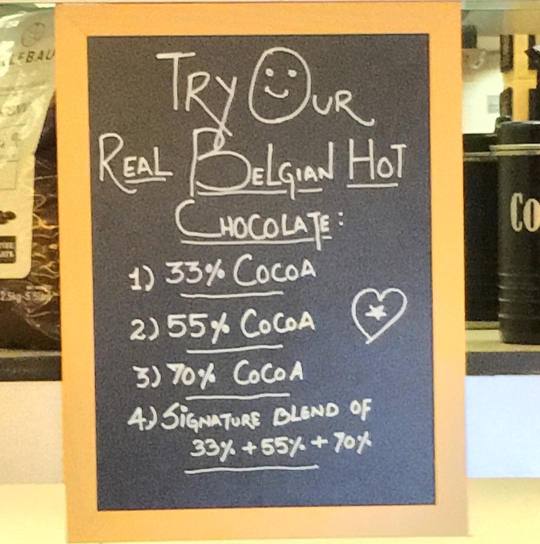 TRY OUR
REAL BELGIAN HOT
CHOCOLATE:
1) 33% COCOA
2) 55% COCOA
3) 70% COCOA
4.) SIGNATURE BLEND OF
33% + 55% + 70%
CO